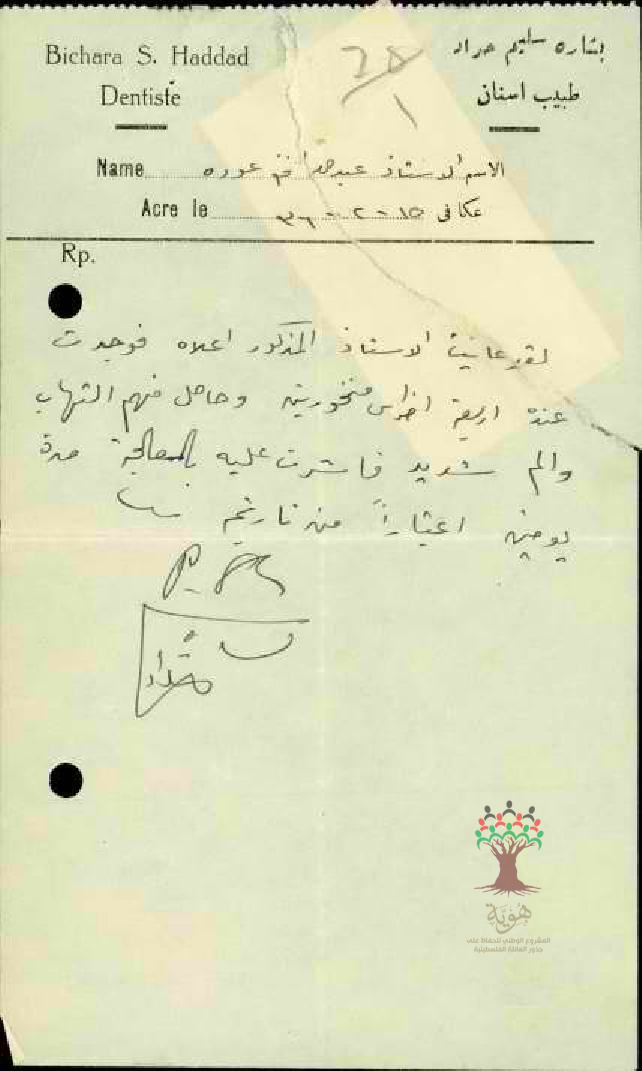 Bichara S. Haddad
Dentiste
بشاره سليم حداد
طبيب اسنان
28/1
Name الاسم الاستاذ عوده
Acre le عكا في ١٥ - ٢ - ٣٦
Rp.
لقد عاينت الاستاذ المذكور اعلاه فوجدت
عنده اربعة اضراس منخورين وحاصل منهم التهاب
والم شديد فاشرت عليه بالمعالجة مدة
يومين اعتباراً من تاريخه
هُويّة
المشروع الوطني للحفاظ على
جذور العائلة الفلسطينية